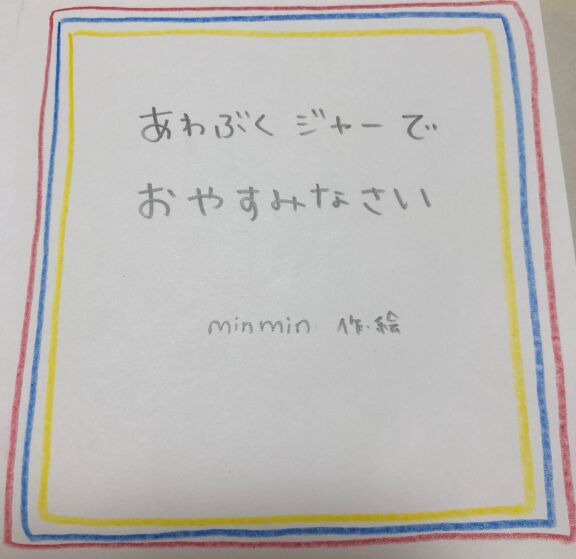 あわぶくジャーで
おやすみなさい
minmin 作・絵